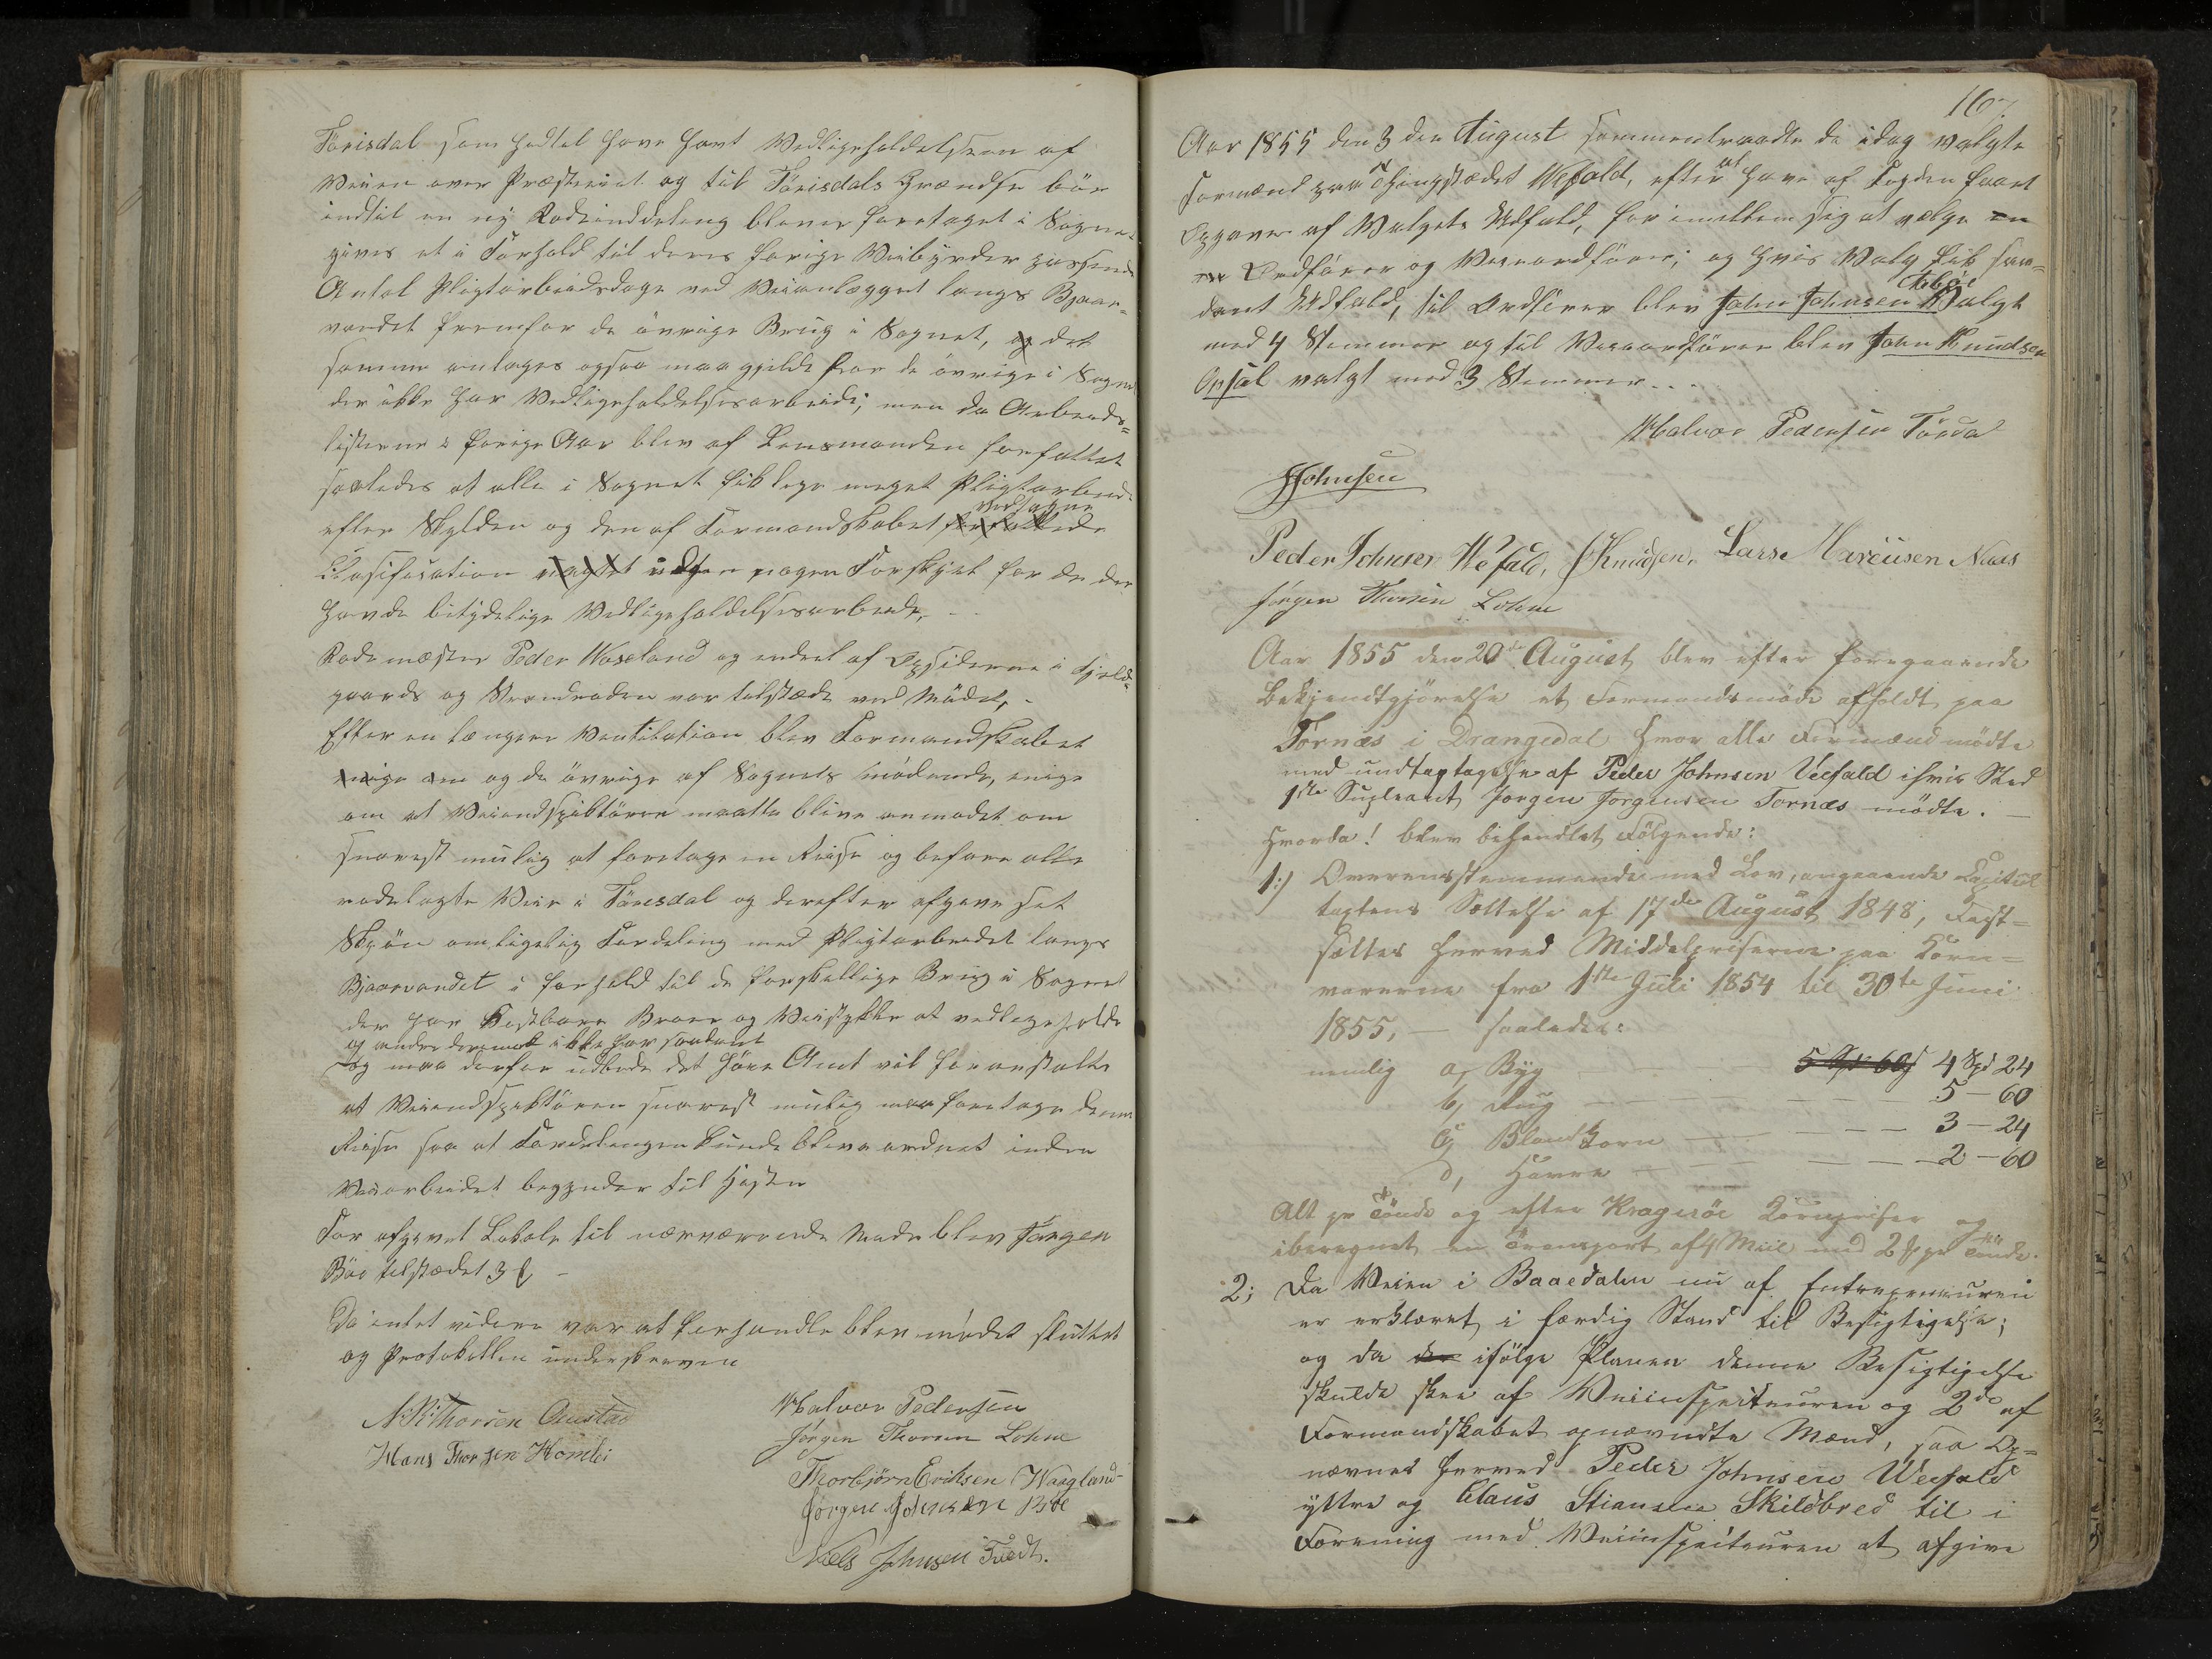 Törisdal som hidtil have havt Vedligeholdelsen af
Veien over Præsteriet og til Törisdals Grændse bör
indtil en ny Rodeinddeling bliver foretaget i Sognet
gives et i Forhold til deres forige Veibyrder passende
Antal Pligtarbeidsdage ved Veianlægget langs Bjaar-
vandet fremfor de övrige Brug i Sognet, og det
samme antages ogsaa maa gjelde for de övrige i Sognet
der ikke har Vedligeholdelsesarbeide; men da Arbeids-
listerne i forige Aar blev af Lensmanden forfattet
saaledes at alle i Sognet fik lige meget Pligtarbeide
vedtagne
efter Skylden og den af Formandskabet forfattede
Clasifikation uden nogen Forskjel for de der
havde betydelige Vedligeholdelsesarbeide,
Rodemester Peder Waseland og endeel af Opsidderne i Fjeld-
gaards og Strandroden var tilstede ved Mödet,
Efter en længere Ventilation blev Formandskabet
enige om og de övrige af Sognets mödende, enige
om at Veiinspektören maatte blive anmodet om
snarest mulig at foretage en Reise og befare alle
rodelagte Veie i Törisdal og derefter afgive sit
Skjön om ligelig Fordeling med Pligtarbeidet langs
Bjaarvandet i forhold til de forskjellige Brug i Sognet
der har Kostbare Broer og Veistykker at vedligeholde
og andre derimod ikke har saadant
og maa derfor udbede det Höie Amt vil foranstalte
at Veiinspektören snarest mulig maa foretage denne
Reise saa at Fordelingen kunde blive ordnet inden
Veiarbeidet begynder til Hösten
For afgivet Lokale til nærværende Möde blev Jörgen
Böe tilstædet 3
Da intet videre var at forhandle blev mödet sluttet
og Protokollen underskreven
N. R. Thorsen Austad
Halvor Pedersen
Hans Thorsen Homlei
Jörgen Thorsen Lohne
Thorbjørn Eriksen Waagland
Jörgen Johnsen Böe
Niels Johnsen Tvedt.
167.
Aar 1855 den 3 die August sammentraadte de idag valgte
Formænd paa Thingstædet Wefald, efter at have af Fogden faaet
Opgave af Valgets Udfald, for imellem sig at vælge en
Ordförer og Viceordförer; og hvis Valg fik saa-
dant Udfald, til Ordförer blev John Johnsen valgt
med 4 Stemmer og til Viceordförer blev John Knudsen
Opsal valgt med 3 Stemmer..
Halvor Pedersen Törda
JJohnsen
Peder Johnsen Wefald, JKnudsen, Lars Marcusen Naas
Jörgen Thorsen Lohne
Aar 1855 den 20de August blev efter foregaaende
bekjendtgjörelse et Formandsmöde afholdt paa
Tornæs i Drangedal hvor alle Formænd mödte
med undtagelse af Peder Johnsen Veefald i hvis Sted
1ste Supleant Jörgen Jörgensen Tornæs mödte.
Hvorda! blev behandlet Fölgende:
1:) Overensstemmende med Lov, angaaende Capitel
taxtens Sættelse af 17de August 1848, Fast-
sættes herved Middelpriserne paa Korn-
varerne fra 1ste Juli 1854 til 30te Juni
1855, — saaledes:
nemlig a, Byg 5 Spd 60 4 Spd 24
b, Rug 5 — 60
c, Blandkorn 3 — 24
d, Havre 2 — 60
Alt pr Tönde og efter Kragerøe Kornpriser og
iberegnet en Transport af 4 Miil med 2 pr Tönde.
2; Da Veien i Baaedalen nu af Entreprenuren
er erklæret i færdig Stand til Besigtigelse;
og da der ifölge Planen denne Besigtigelse
skulde skee af Veiinspecteuren og 2de af
Formandskabet opnævndte Mænd, saa Op-
nævnes herved Peder Johnsen Weefald
yttre og Claus Stiansen Skildbred til i
Forening med Veiinspecteuren at afgive